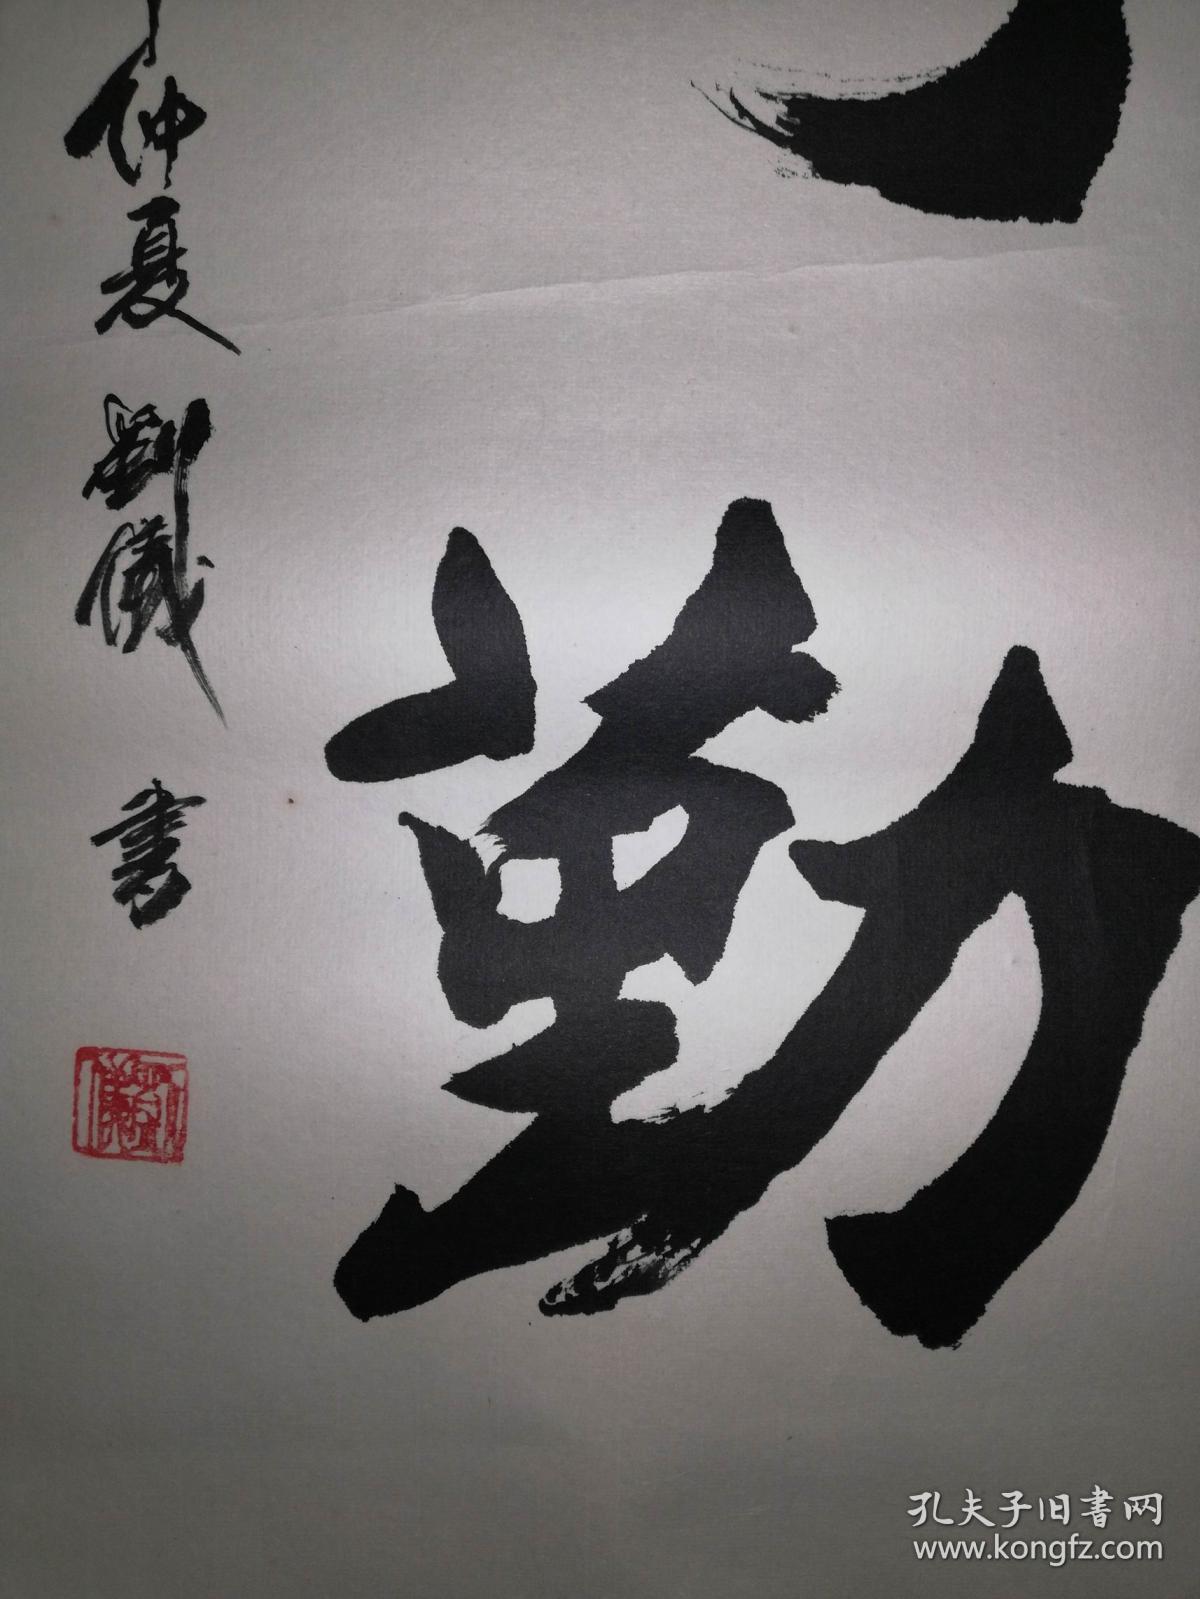 勤
仲夏 劉儀 書
孔夫子旧书网
www.kongfz.com